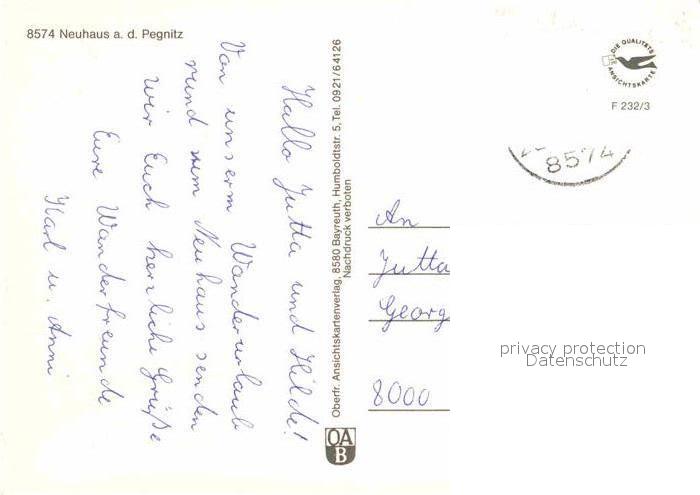 8574 Neuhaus a. d. Pegnitz
Hallo Jutta und Hilde!
Von unserm Wanderurlaub
rund um Neuhaus senden
wir Euch herzliche Grüße
Eure Wanderfreunde
Karl u. Anni
Oberfr. Ansichtskartenverlag, 8580 Bayreuth, Humboldtstr. 5, Tel. 0921/64126
Nachdruck verboten
OA
B
DIE QUALITÄTS
ANSICHTSKARTE
F 232/3
8574
An
Jutta
Georg
8000
privacy protection
Datenschutz